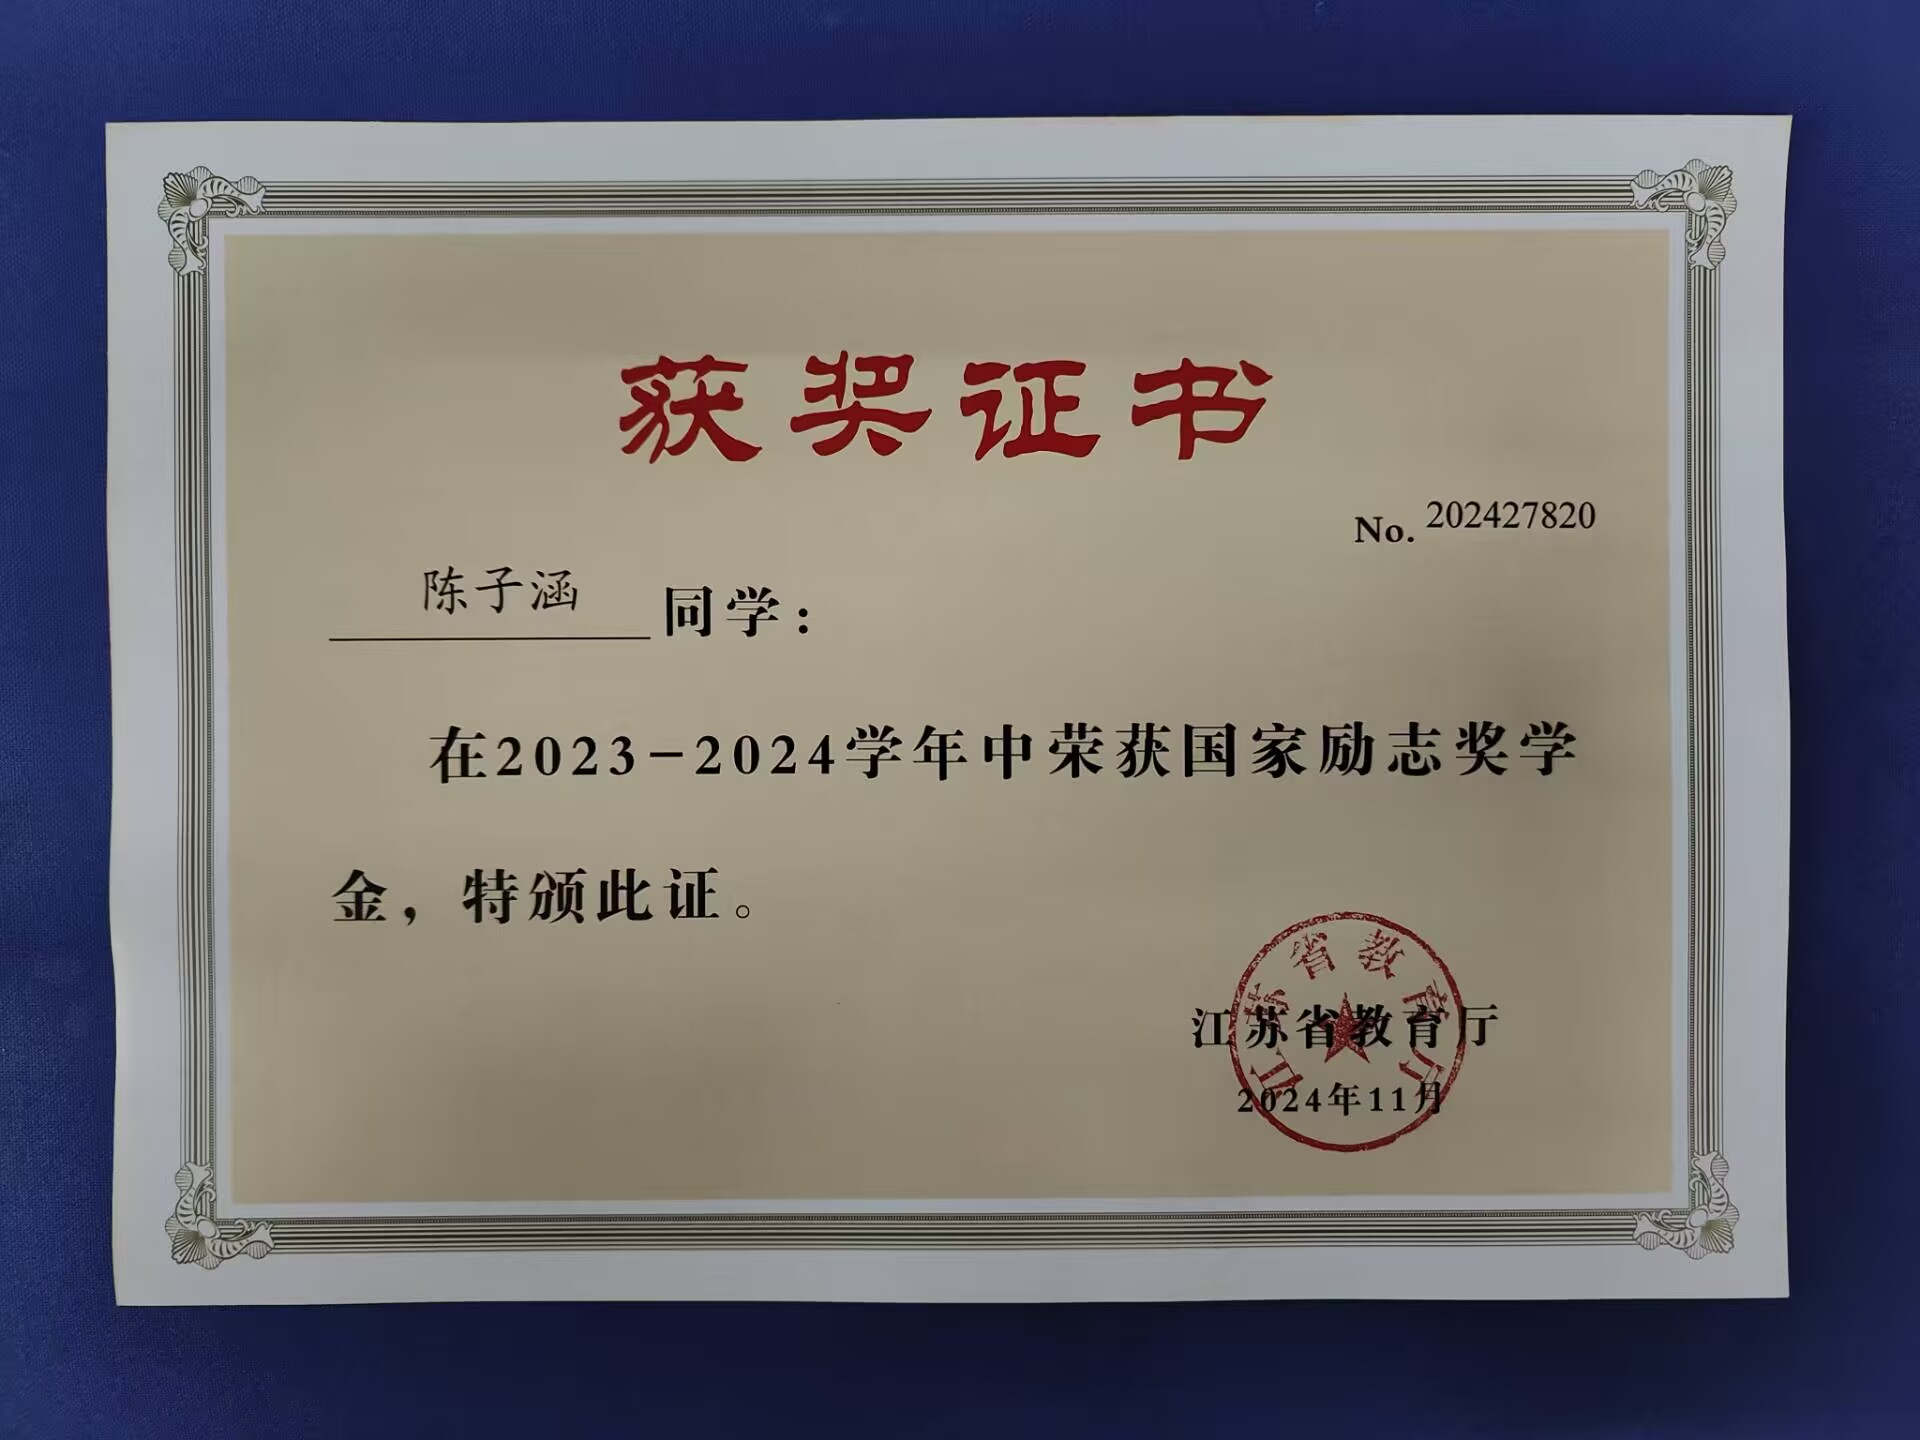 获奖证书
No. 202427820
陈子涵 同学：
在2023-2024学年中荣获国家励志奖学
金，特颁此证。
江苏省教育厅
2024年11月
江苏省教育厅